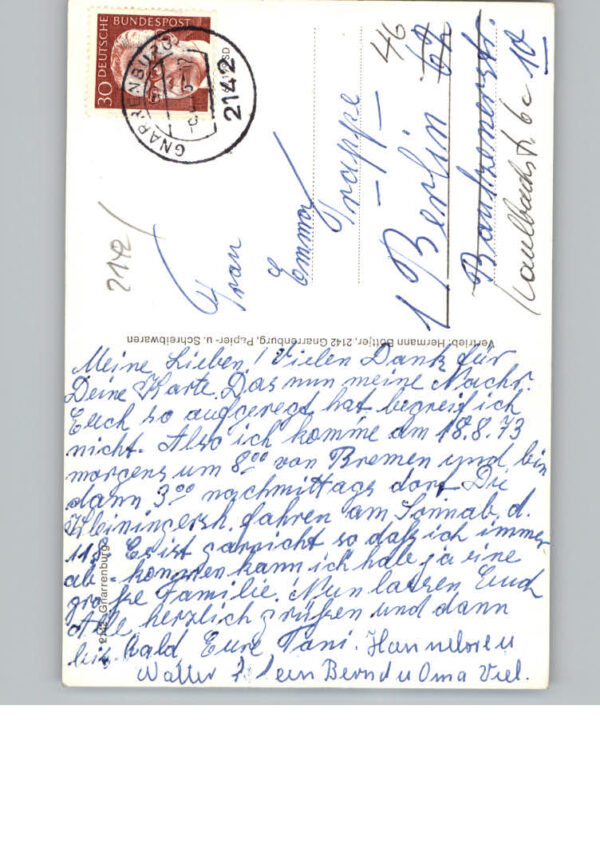 30 DEUTSCHE BUNDESPOST
GNARRENBURG
2142
2142
Frau
Emma
Trapp
46
1 Berlin
Bautzenerstr.
Kaulbachst. 6c 10
Vertrieb: Hermann Böttjer, 2142 Gnarrenburg, Papier- u. Schreibwaren
Gnarrenburg
Meine Lieben! Vielen Dank für
Deine Karte. Das nun meine Nachr.
Euch so aufgeregt hat begreif ich
nicht. Also ich komme am 18.8.73
morgens um 8.00 von Bremen und bin
dann 3.00 nachmittags dort. Die
fahren am Sonnab. d.
11.8. Es ist garnicht so daß ich immer
ab-kommen kann ich habe ja eine
große Familie. Nun lassen Euch
Alle herzlich grüßen und dann
bis bald Eure Tani. Hannelore u
Walter Bernd u Oma Viel.